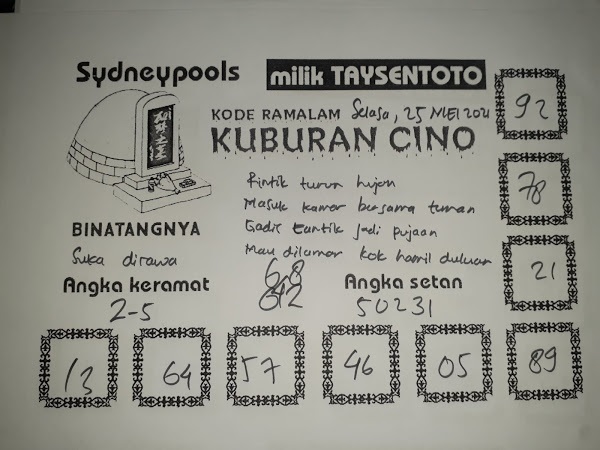 Sydneypools
milik TAYSENTOTO
KODE RAMALAM Selasa, 25 MEI 2021
KUBURAN CINO
92
Rintik turun hujan
Masuk kamar bersama teman
Gadis cantik jadi pujaan
Mau dilamar kok hamil duluan
78
BINATANGNYA
Suka dirawa
21
Angka keramat
6-8
Angka setan
2-5
50231
13
64
57
46
05
89